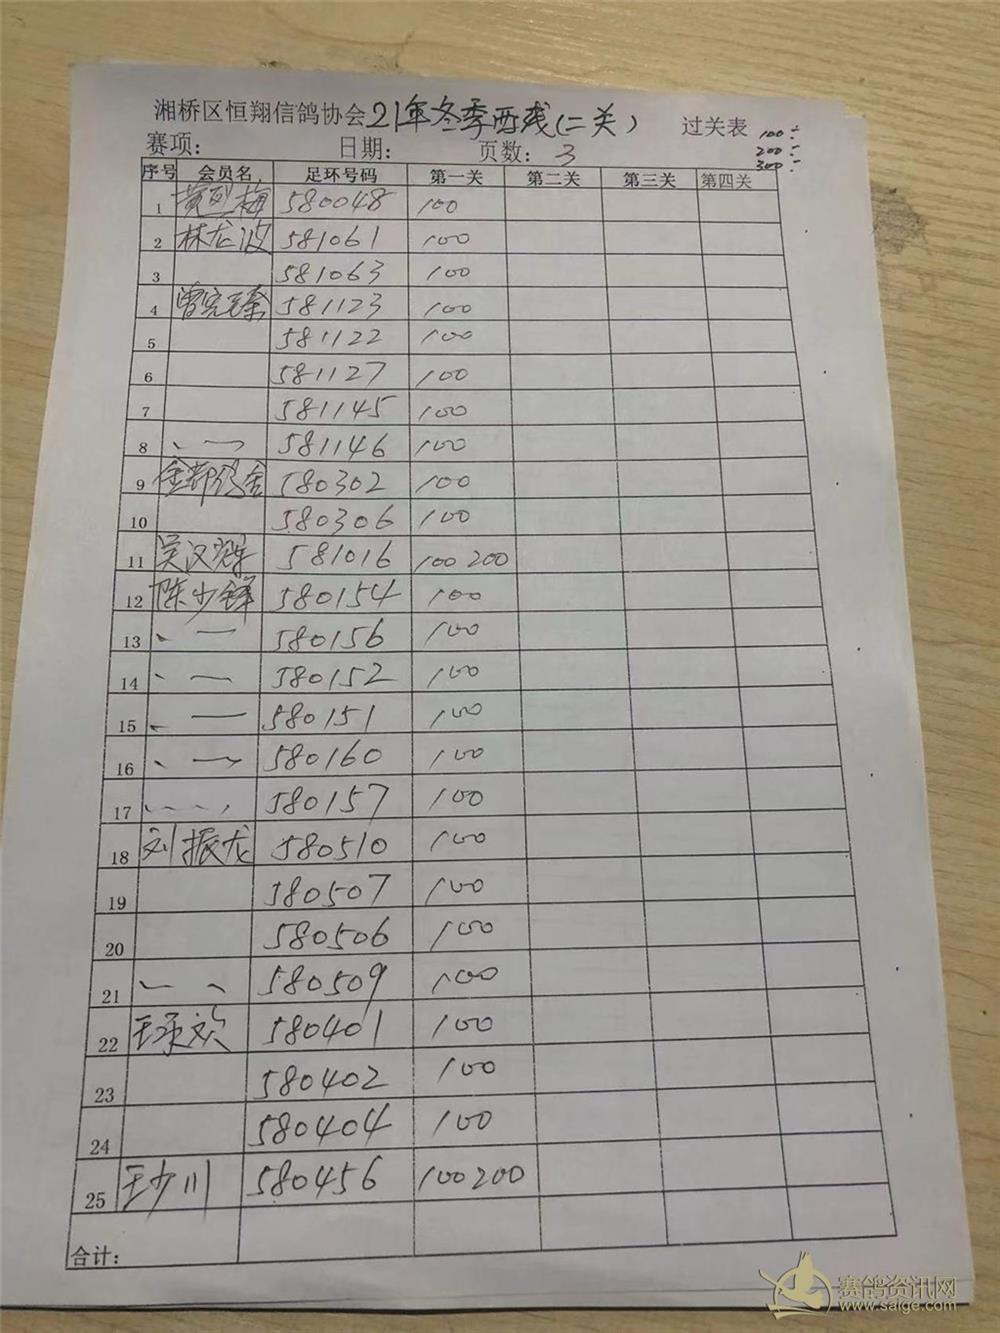 湘桥区恒翔信鸽协会21年冬季西线(二关) 过关表 100:
赛项: 日期: 页数: 3 200:
300:
序号 会员名 足环号码 第一关 第二关 第三关 第四关
1 黄烈梅 580048 100
2 林龙波 581061 100
3 581063 100
4 581123 100
5 581122 100
6 581127 100
7 581145 100
8 、一 581146 100
9 金都鸽舍 580302 100
10 580306 100
11 吴汉 581016 100 200
12 陈少锋 580154 100
13 、一 580156 100
14 、一 580152 100
15 、一 580151 100
16 、一 580160 100
17 580157 100
18 刘振龙 580510 100
19 580507 100
20 580506 100
21 580509 100
22 王 欢 580401 100
23 580402 100
24 580404 100
25 王少川 580456 100 200
合计:
赛鸽资讯网
www.saige.com